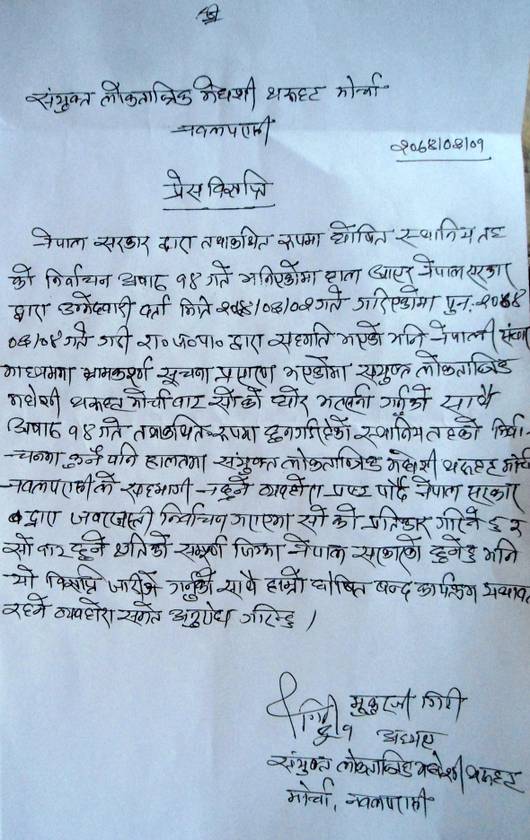 संयुक्त लोकतान्त्रिक मधेशी थरूहट मोर्चा
नवलपरासी
२०७४/०३/०१
प्रेस विज्ञप्ति
नेपाल सरकार द्वारा तथाकथित रूपमा घोषित स्थानिय तह
को निर्वाचन अषाढ १४ गते भनिएकोमा हाल आएर नेपाल सरकार
द्वारा उम्मेदवारी दर्ता मिति गते गरिएकोमा पुन. २०७४
गते गरी रा० ज० पा० द्वारा सहमति भएको भनि नेपाली संचार
माध्यममा भ्रामक सूचना प्रशारण भएकोमा संयुक्त लोकतान्त्रिक
मधेशी थरूहट मोर्चा बाट सो को घोर भत्सर्ना गर्नुको साथै
अषाढ १४ गते तथाकथित रूपमा हुन गईरहेको स्थानिय तहको निर्वा-
चनमा कुनै पनि हालतमा संयुक्त लोकतान्त्रिक मधेशी थरूहट मोर्चा
नवलपरासीको सहभागी नहुने व्यहोरा प्रष्ट पार्दै नेपाल सरकार
द्वारा जवरजस्ती निर्वाचन गराएमा सो को प्रतिकार गरिने छ र
सो बाट हुने क्षतिको सम्पूर्ण जिम्मा नेपाल सरकारको हुनेछ भनि
यो विज्ञप्ति जारी गर्नुको साथै हाम्रो घोषित बन्द कार्यक्रम यथावत
रहने व्यहोरा समेत अनुरोध गरिन्छ ।
गिरी
अध्यक्ष
संयुक्त लोकतान्त्रिक मधेशी थरूहट
मोर्चा, नवलपरासी